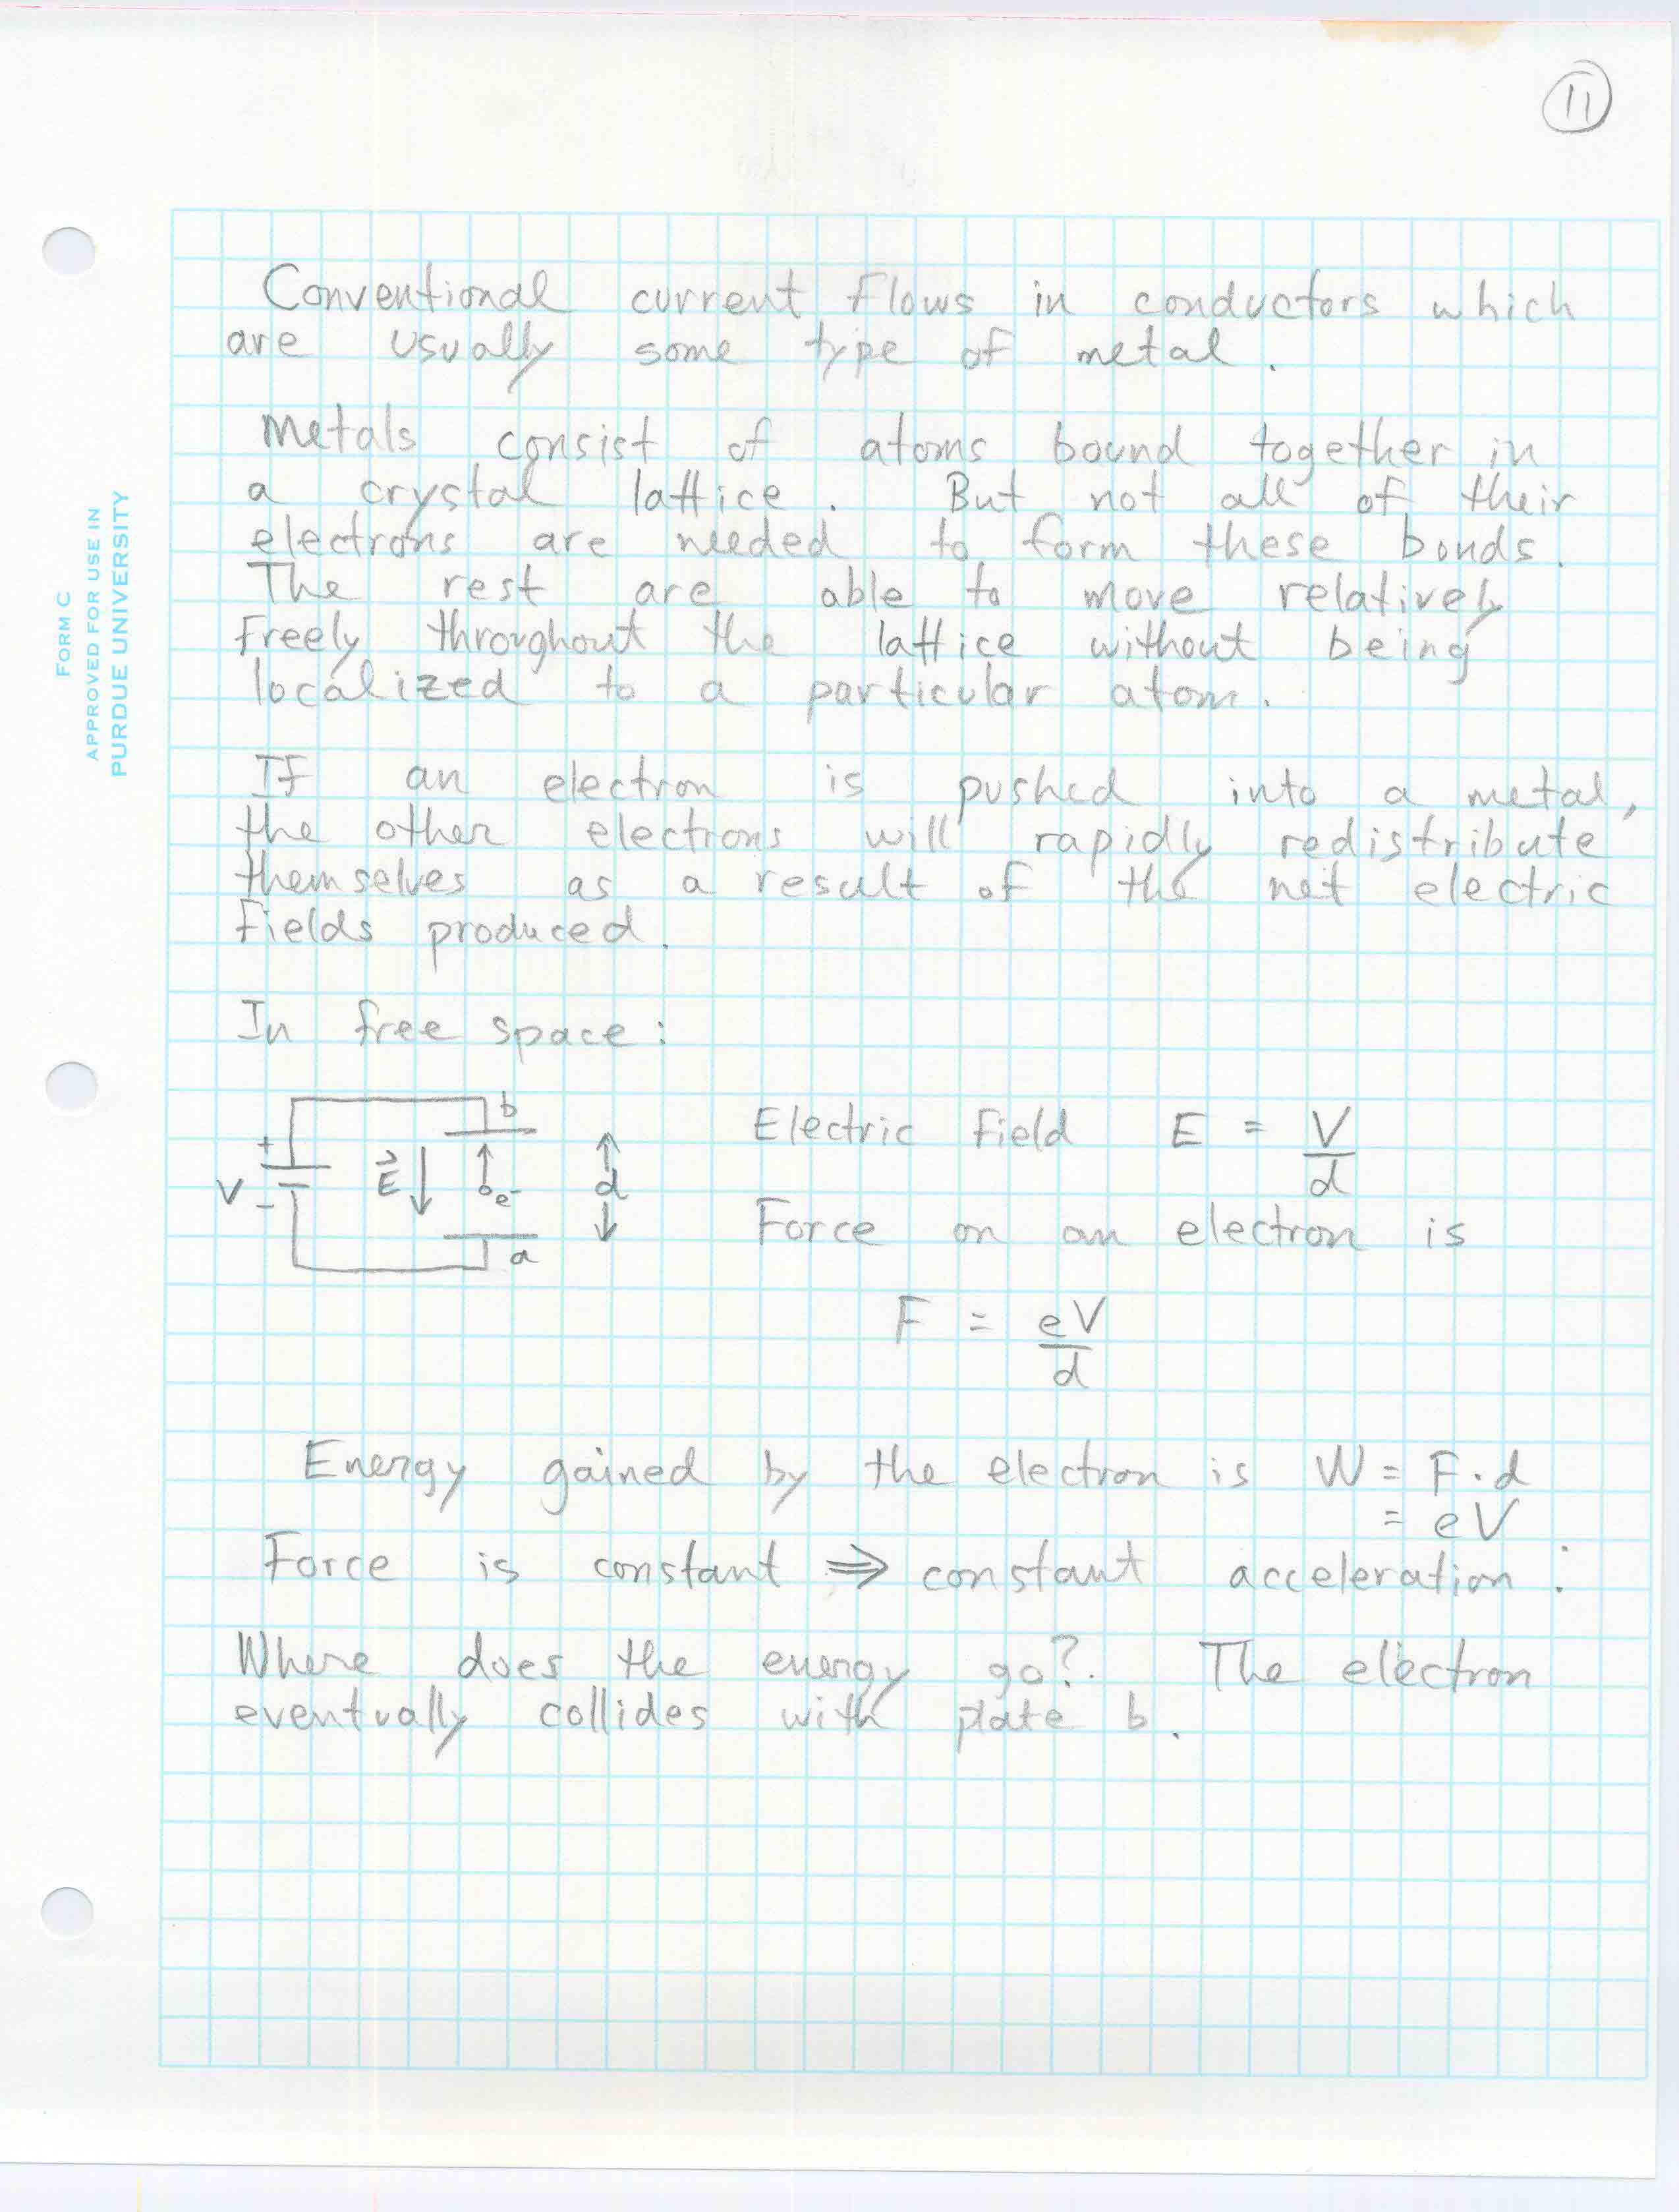 11
FORM C
APPROVED FOR USE IN
PURDUE UNIVERSITY
Conventional current flows in conductors which
are usually some type of metal.
Metals consist of atoms bound together in
a crystal lattice. But not all of their
electrons are needed to form these bonds.
The rest are able to move relatively
freely throughout the lattice without being
localized to a particular atom.
If an electron is pushed into a metal,
the other electrons will rapidly redistribute
themselves as a result of the net electric
fields produced.
In free space:
b
+
V
-
E⃗
e-
d
a
Electric field E = V/d
Force on an electron is
F = eV/d
Energy gained by the electron is W = F·d
= eV
Force is constant ⇒ constant acceleration:
Where does the energy go? The electron
eventually collides with plate b.